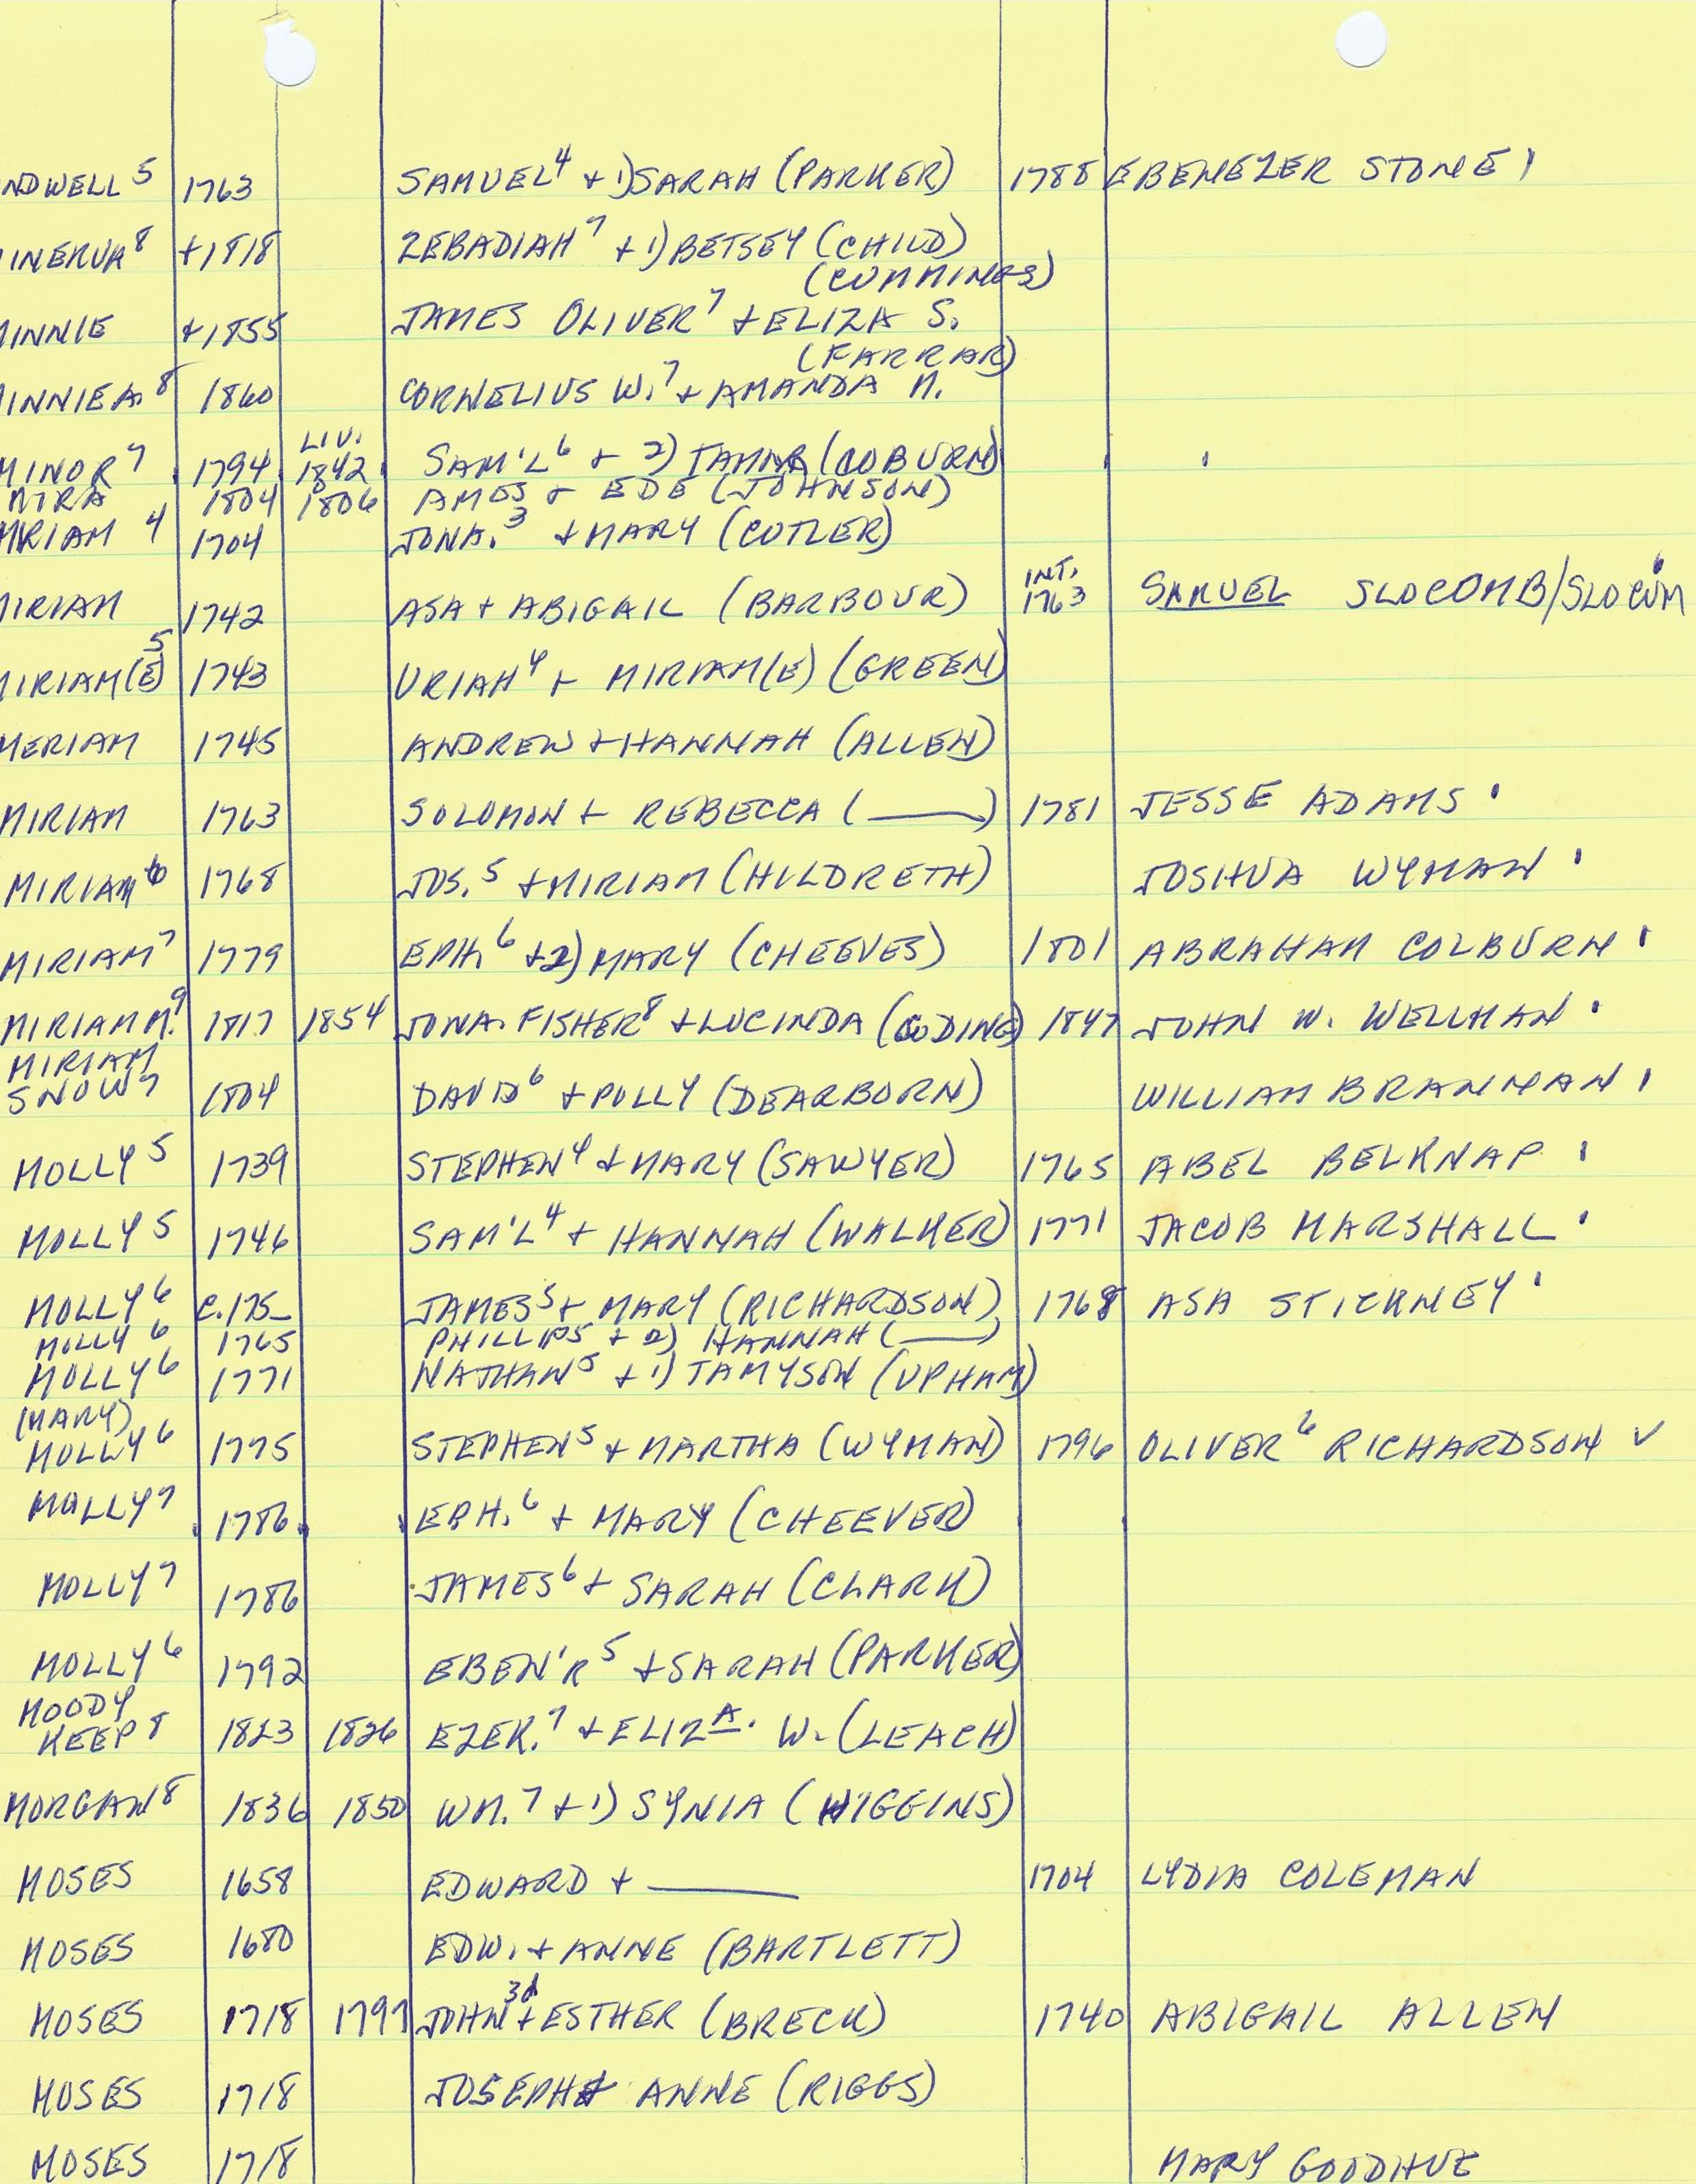 NDWELL 5 1763 SAMUEL 4 + 1) SARAH (PARKER) 1788 EBENEZER STONE
INERVA 8 +1818 ZEBADIAH 7 + 1) BETSEY (CHILD)
(CUMMINGS)
INNIE +1855 JAMES OLIVER 7 + ELIZA S.
(FARRAR)
INNIE A. 8 1860 CORNELIUS W. 7 + AMANDA M.
LIV.
MINOR 7 1794 1842 SAM'L 6 + 2) (COBURN)
MIRA 1804 1806 AMOS + EDE (JOHNSON)
MIRIAM 4 1704 JONA. 3 + MARY (CUTLER)
INT.
MIRIAM 1742 ASA + ABIGAIL (BARBOUR) 1763 SAMUEL SLOCOMB/SLOCUM
MIRIAM(E) 5 1743 URIAH 4 + MIRIAM(E) (GREEN)
MERIAM 1745 ANDREW + HANNAH (ALLEN)
MIRIAM 1763 SOLOMON + REBECCA ( ___ ) 1781 JESSE ADAMS
MIRIAM 6 1768 JOS. 5 + MIRIAM (HILDRETH) JOSHUA WYMAN
MIRIAM 7 1779 EPH. 6 + 2) MARY (CHEEVES) 1801 ABRAHAM COLBURN
MIRIAM M. 9 1817 1854 JONA. FISHER 8 + LUCINDA (CODING) 1847 JOHN W. WELLMAN
MIRIAM
SNOW 7 1804 DAVID 6 + POLLY (DEARBORN) WILLIAM BRANMAN
MOLLY 5 1739 STEPHEN 4 + MARY (SAWYER) 1765 ABEL BELKNAP
MOLLY 5 1746 SAM'L 4 + HANNAH (WALKER) 1771 JACOB MARSHALL
MOLLY 6 C.175_ JAMES 5 + MARY (RICHARDSON) 1768 ASA STICKNEY
MOLLY 6 1765 PHILLIP 5 + 2) HANNAH ( ___ )
MOLLY 6 1771 NATHAN 5 + 1) TAMYSON (UPHAM)
(MARY)
MOLLY 6 1775 STEPHEN 5 + MARTHA (WYMAN) 1796 OLIVER 6 RICHARDSON ✓
MOLLY 7 1786 EPH. 6 + MARY (CHEEVER)
MOLLY 7 1786 JAMES 6 + SARAH (CLARK)
MOLLY 6 1792 EBEN'R 5 + SARAH (PARKER)
MOODY
KEEP 8 1823 1826 EZEK. 7 + ELIZA. W. (LEACH)
MORGAN 8 1836 1850 WM. 7 + 1) SYNIA (HIGGINS)
MOSES 1658 EDWARD + ___ 1704 LYDIA COLEMAN
MOSES 1680 EDW. + ANNE (BARTLETT)
MOSES 1718 1797 JOHN 3d + ESTHER (BRECK) 1740 ABIGAIL ALLEN
MOSES 1718 JOSEPH + ANNE (RIGGS)
MOSES 1718 MARY GOODHUE